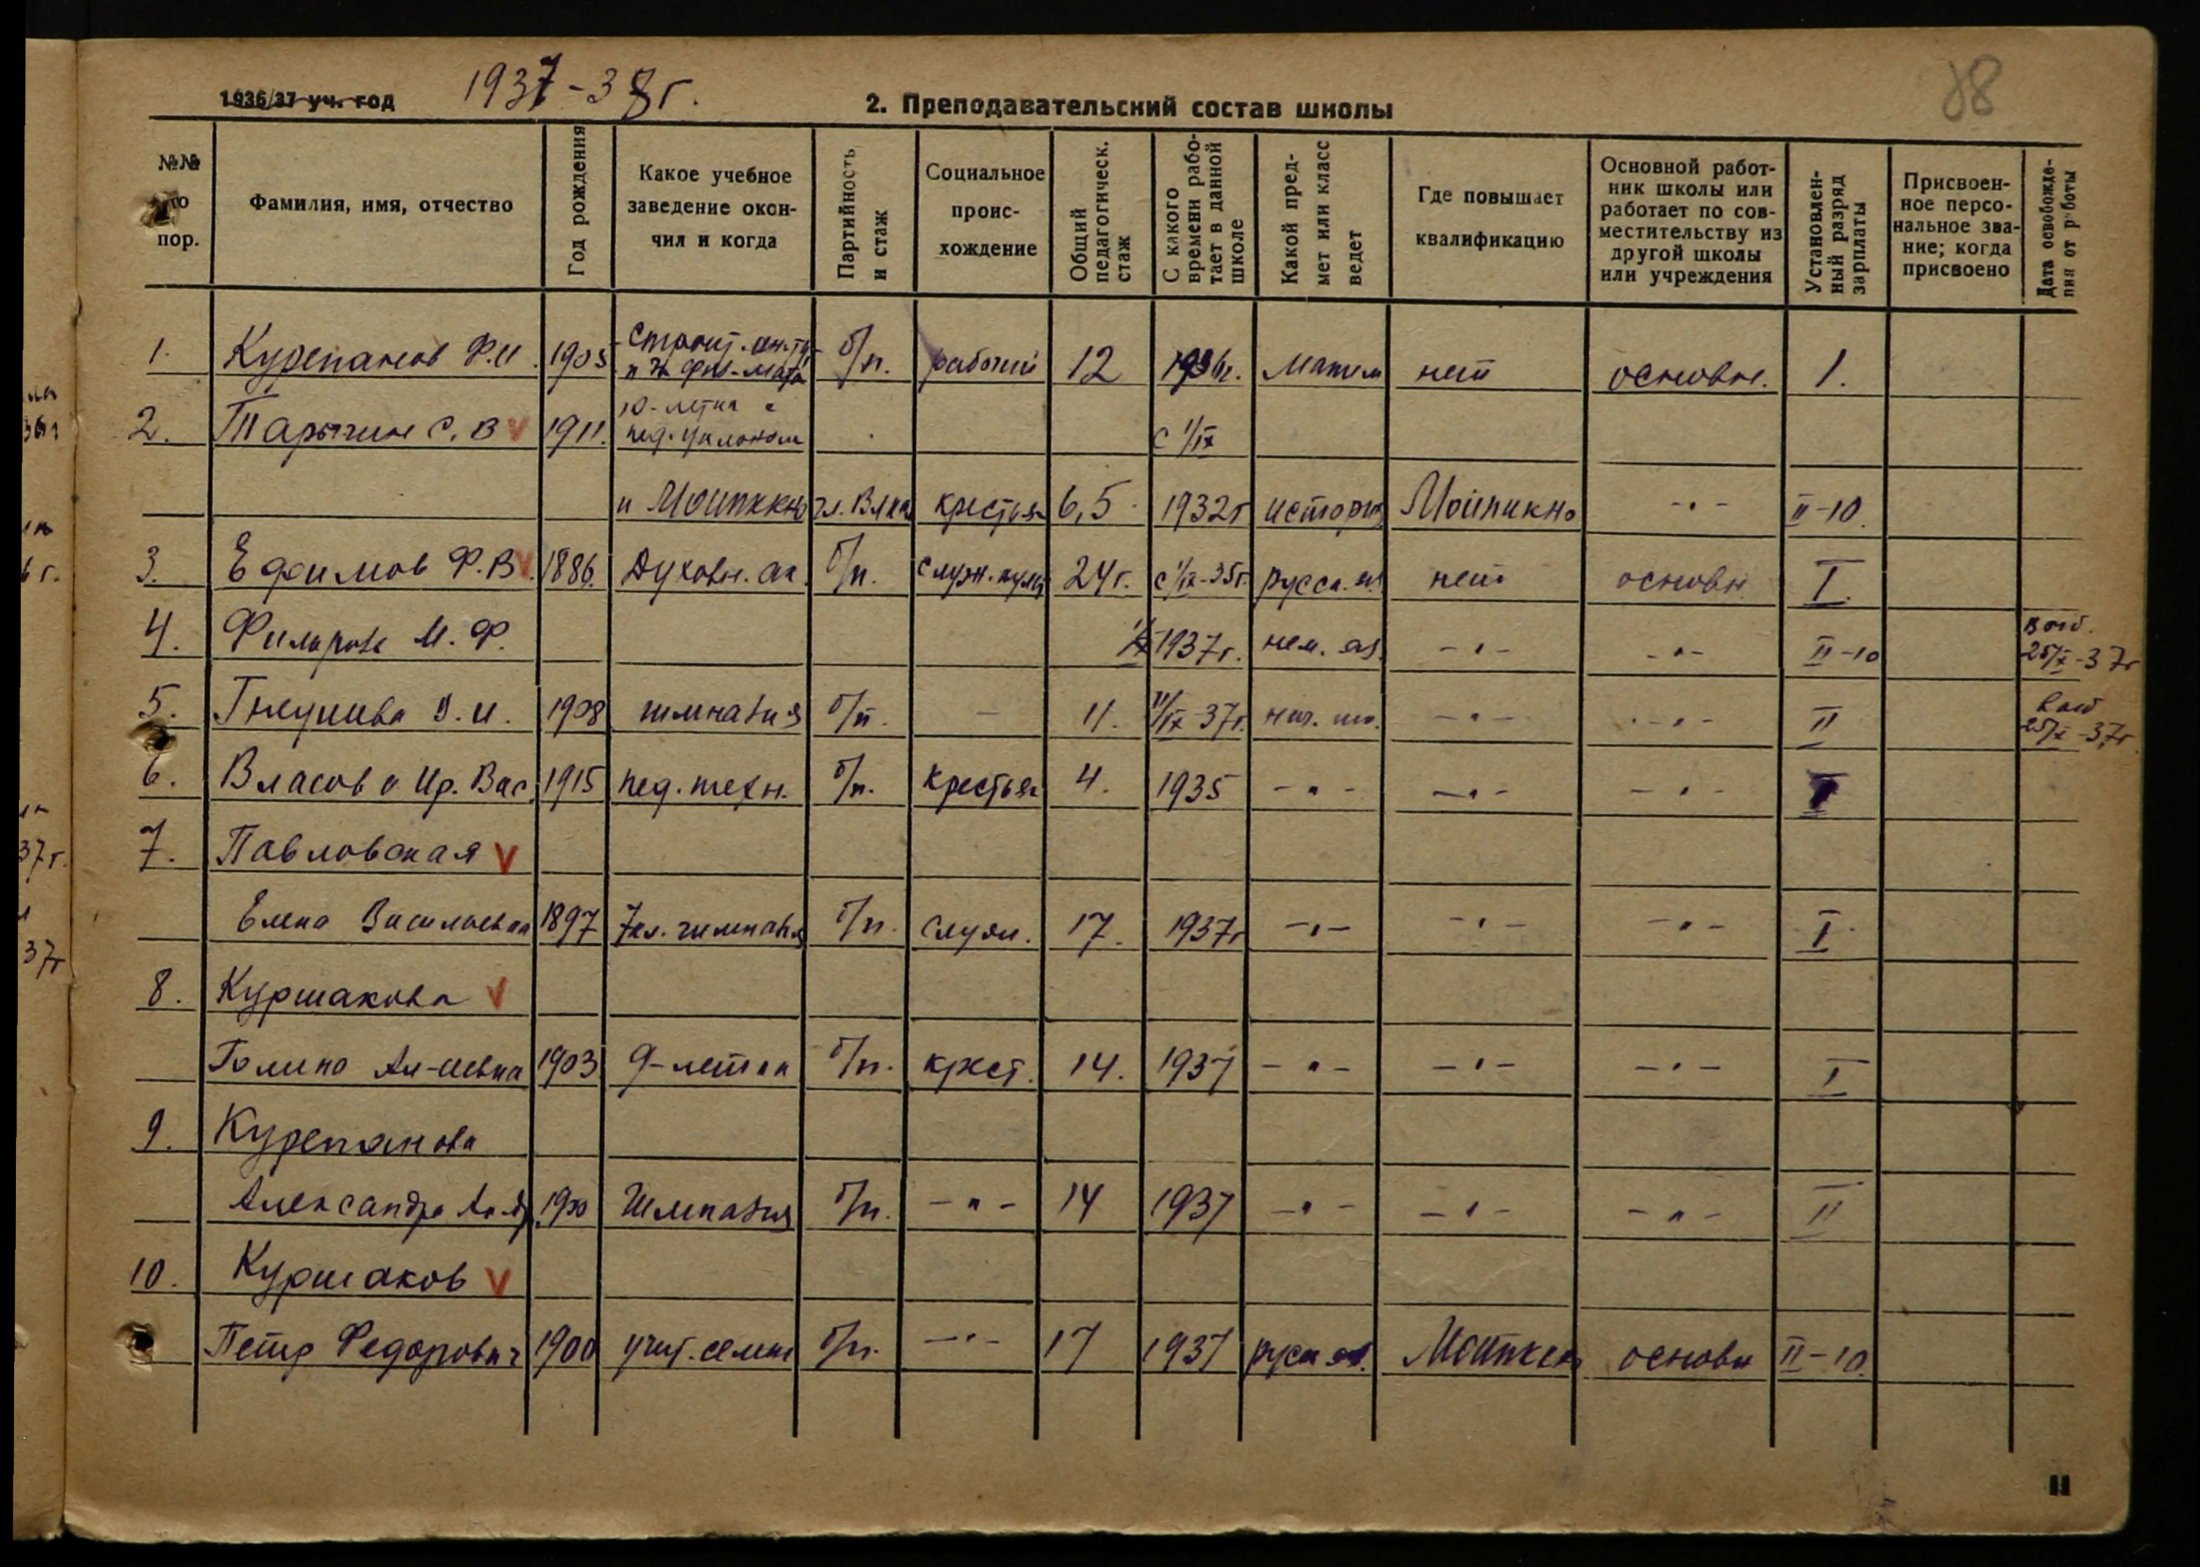 1936/37 уч. год 1937-38 г. 2. Преподавательский состав школы 88
№№ по пор. Фамилия, имя, отчество Год рождения Какое учебное заведение окончил и когда Партийность и стаж Социальное происхождение Общий педагогическ. стаж С какого времени работает в данной школе Какой предмет или класс ведет Где повышает квалификацию Основной работник школы или работает по совместительству из другой школы или учреждения Установленный разряд зарплаты Присвоенное персональное звание; когда присвоено Дата освобождения от работы
1. Курепанов Ф.И. 1905 б/п. рабочий 12 1936г. матем нет основн. I.
2. С. В 1911. 10-летка с
пед. уклоном с 1/IX
и крестьян 6,5 1932г истори -"- II-10.
3. Ефимов Ф.В. 1886. Духовн. ак. б/п. 24г. с 1/IX-35г. русск. яз. нет основн. I.
4. М. Ф. 1937г. нем. яз. -"- -"- II-10 25/X-37г
5. 1908 гимназия б/п. - 11. 11/IX-37г. нач. шк. -"- -"- II 25/X-37г.
6. Власова Ир. Вас. 1915 пед. техн. б/п. крестьян 4. 1935 -"- -"- -"- I
7. Павловская V
Елена Васильевна 1897 7 кл. гимназия б/п. служ. 17. 1937г -"- -"- -"- I.
8. Куршакова V
Галина Ал-еевна 1903 9-летка б/п. крест. 14. 1937 -"- -"- -"- I
9. Курепанова
Александра 1900 Гимназия б/п. -"- 14 1937 -"- -"- -"- II
10. Куршаков V
Петр Федорович 1900 учит. семин б/п. -"- 17 1937 русск яз. основн II-10.
11